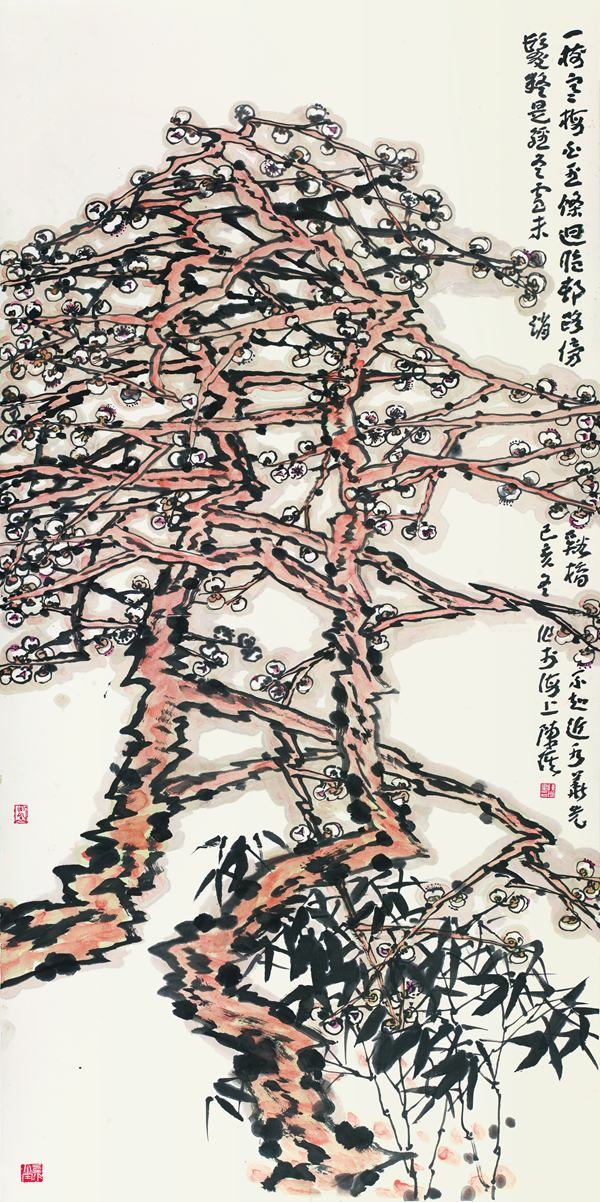 一樹寒梅白玉條迥臨邨路傍谿橋不知近水華先
發疑是經冬雪未消己亥冬作於海上陳